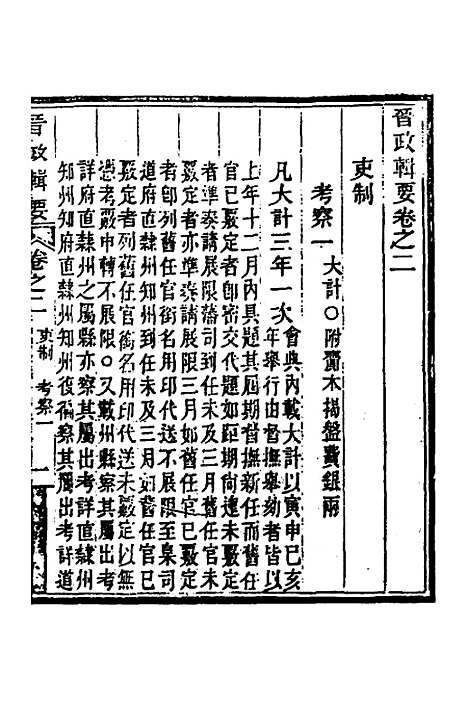 晉政輯要卷之二
吏制
考察一 大計○附齎本揭盤費銀兩
凡大計三年一次 會典內載大計以寅申巳亥
年舉行由督撫舉劾者皆以
上年十二月內具題其屆期督撫新任而舊任
官已覈定者卽密交代題如距期尙遠未覈定
者準奏請展限藩司到任未及三月舊任官未
覈定者亦準奏請展限三月如舊任官已覈定
者卽列舊任官銜名用印代送不展限至臬司
道府直隸州知州到任未及三月如舊任官已
覈定者列舊任官銜名用印代送未覈定以無
憑考覈申轉不展限○又載州縣察其屬出考
詳府直隸州之屬縣亦察其屬出考詳直隸州
知州知府直隸州知州復徧察其屬出考詳道
晉政輯要 卷之二 吏制 考察一 一